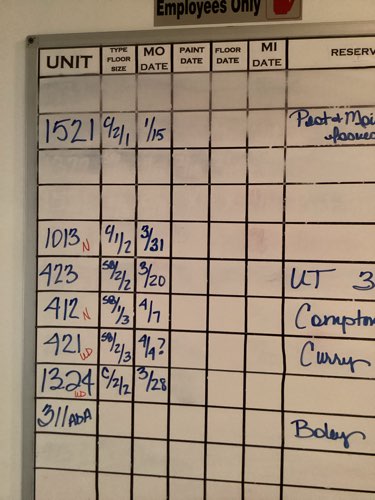 Employees Only
UNIT TYPE FLOOR SIZE MO DATE PAINT DATE FLOOR DATE MI DATE RESERV
1521 C/2/1 1/15 Pest & Mai
1013 N C/1/2 3/31
423 SB/2/2 3/20 UT 3
412 N SB/1/3 4/7 Compton
421 UD SB/2/3 4/4? Curry
1324 UD C/2/2 3/28
311 ADA Boley